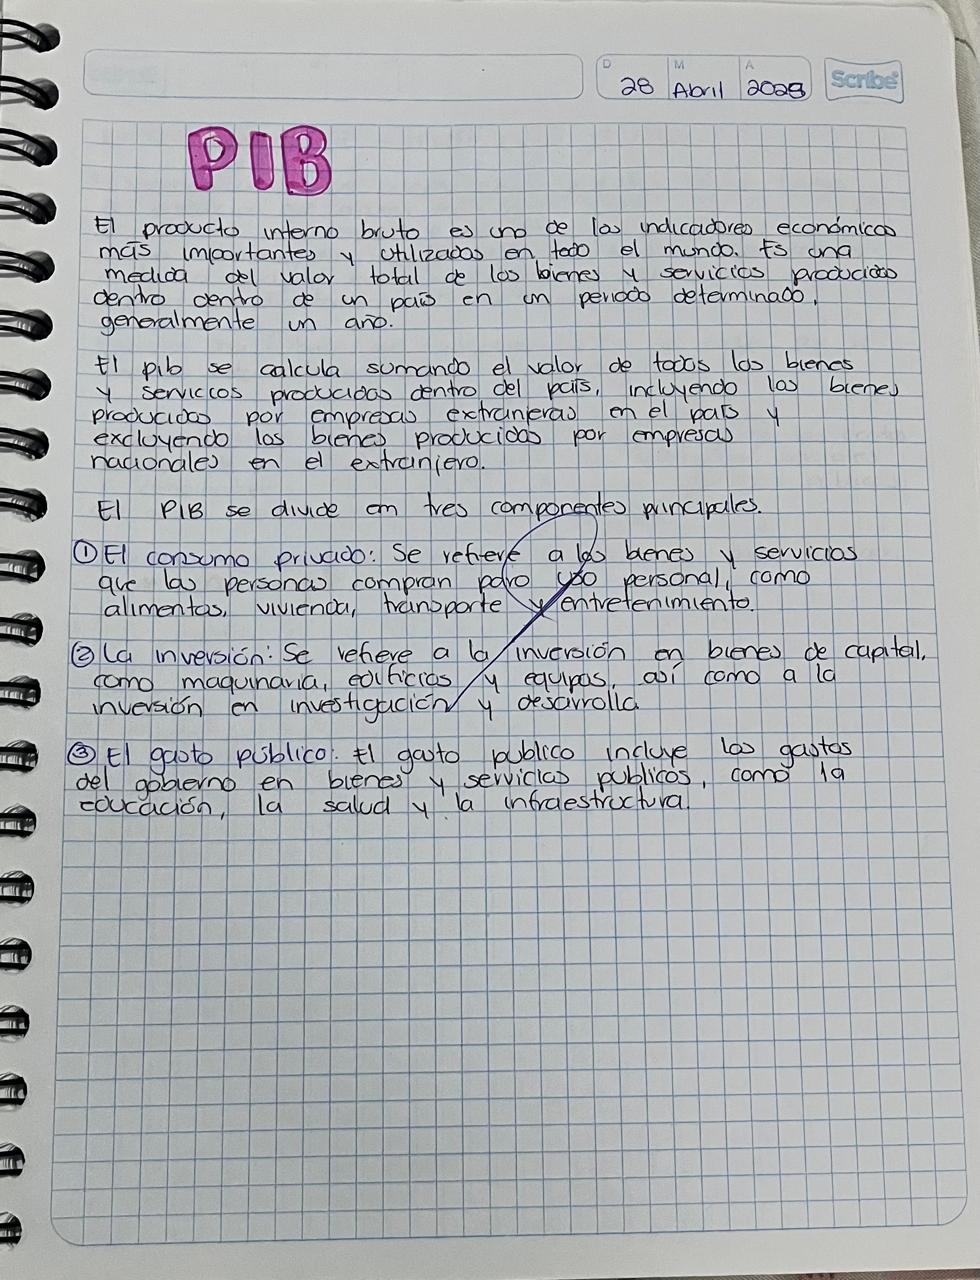 D M A
28 Abril 2028
Scribe
PIB
El producto interno bruto es uno de los indicadores económicos
más importantes y utilizados en todo el mundo. Es una
medida del valor total de los bienes y servicios producidos
dentro dentro de un país en un periodo determinado,
generalmente un año.
El pib se calcula sumando el valor de todos los bienes
y servicios producidos dentro del país, incluyendo los bienes
producidos por empresas extranjeras en el país y
excluyendo los bienes producidos por empresas
nacionales en el extranjero.
El PIB se divide en tres componentes principales.
① El consumo privado: Se refiere a los bienes y servicios
que las personas compran para uso personal, como
alimentas, vivienda, transporte y entretenimiento.
② La inversión: Se refiere a la inversión en bienes de capital,
como maquinaria, edificios y equipos, así como a la
inversión en investigación y desarrolla
③ El gasto público: El gasto publico incluye los gastos
del gobierno en bienes y servicios publicos, como la
educación, la salud y la infraestructura.